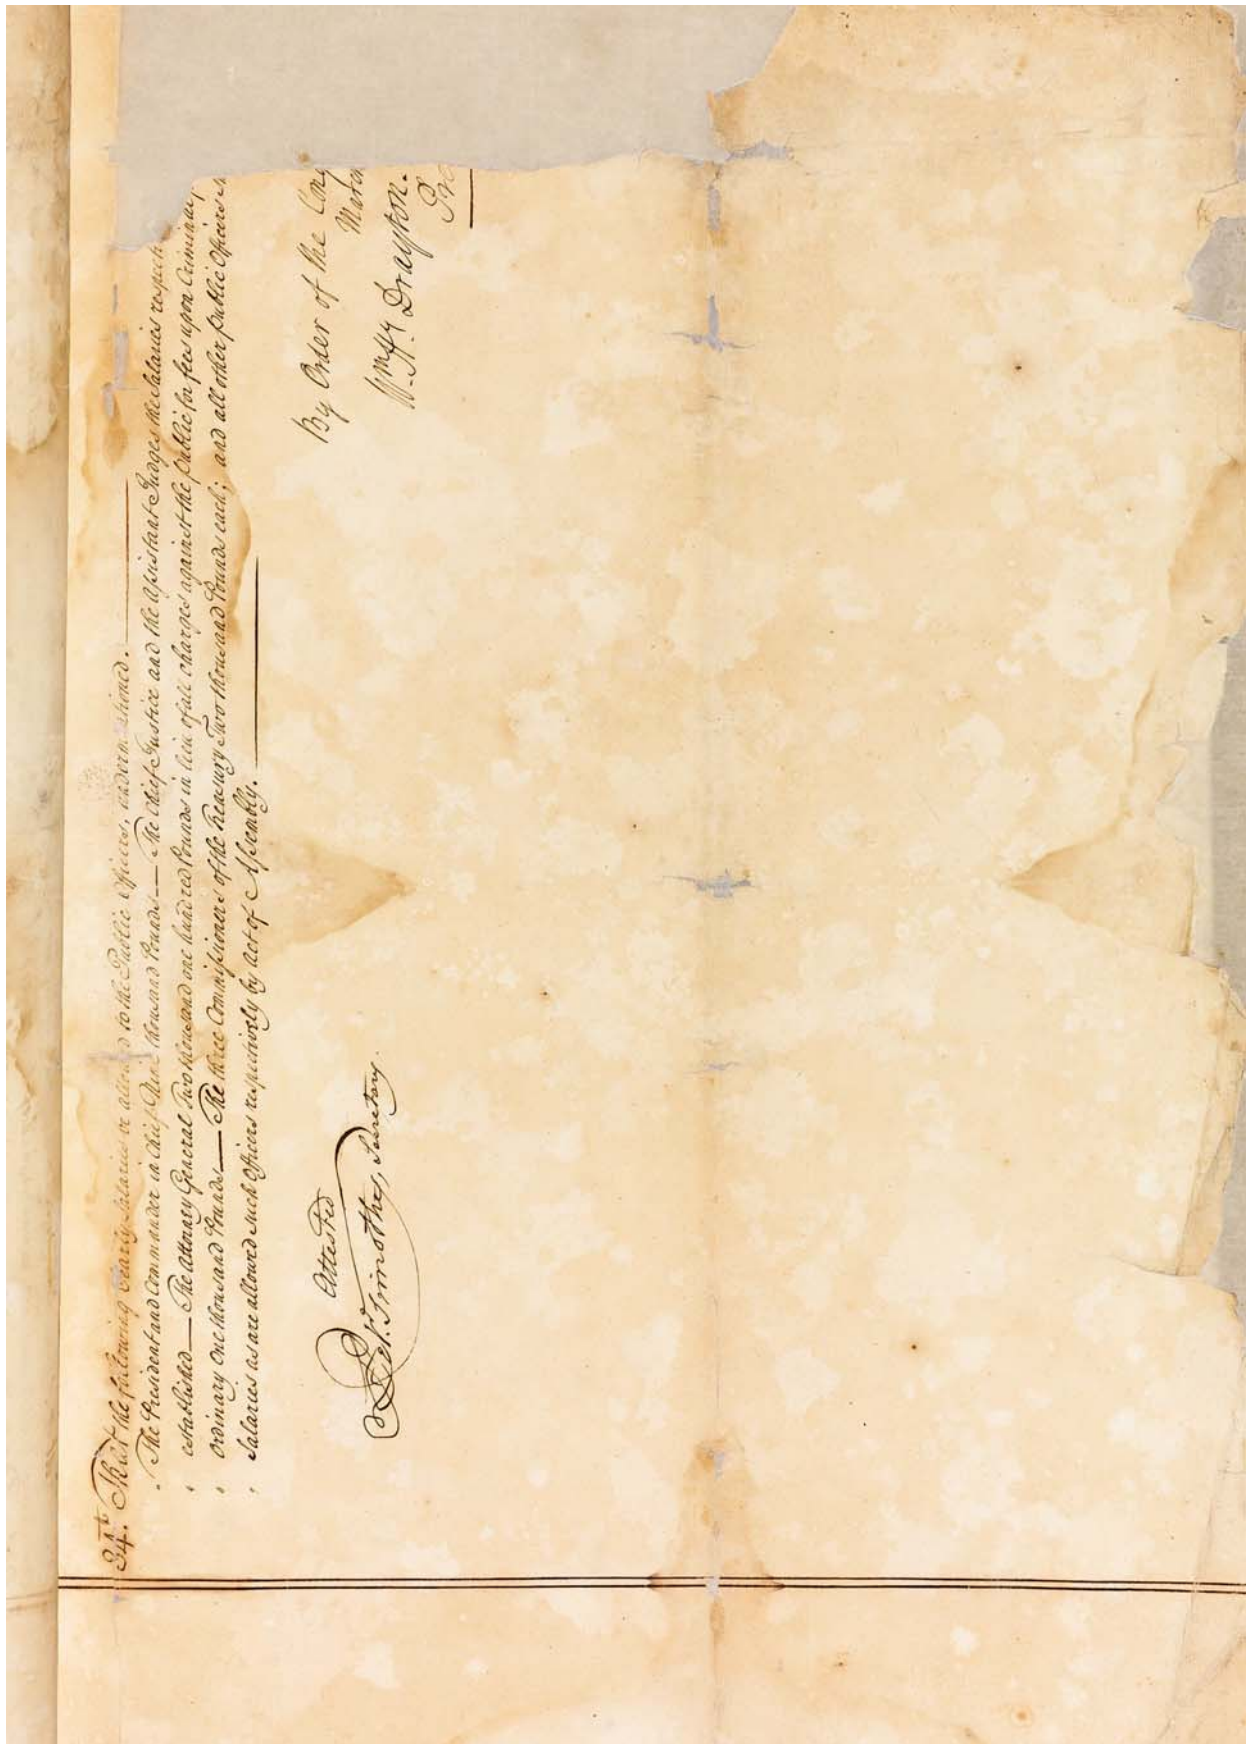 34.t That the following Yearly Salaries be allowed to the Public Officers, undermentioned.
The President and Commander in Chief Nine thousand Pounds — The Chief Justice and the Assistant Judges the Salaries respect
established — The Attorney General Two thousand one hundred Pounds in lieu of all charges against the Public for fees upon Criminal
Ordinary One thousand Pounds — The three Commissioners of the Treasury Two thousand Pounds each; and all other Public Officers
Salaries as are allowed such Officers respectively by Act of Assembly.
By Order of the Cong
March
Wm. Hy. Drayton.
Pre
Attested
Pet.r Timothy, Secretary.